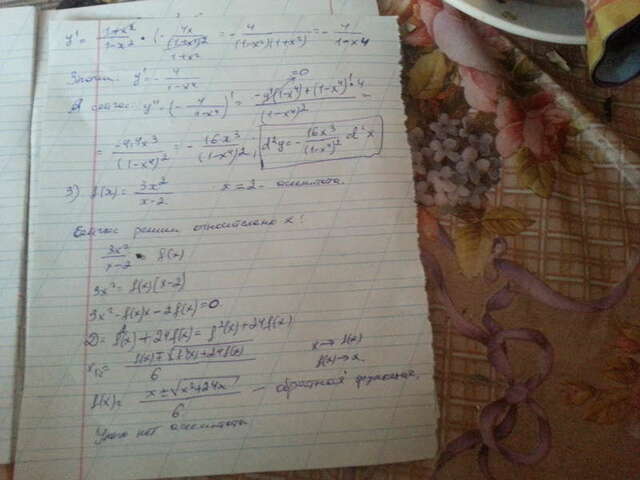 y' = (1+x²)/(1-x²) · (- 4x/(1+x²)² / 1+x²) = - 4/((1-x²)(1+x²)) = - 4/(1-x⁴)
Значит: y' = - 4/(1-x⁴)
А сейчас: y'' = (- 4/(1-x⁴))' = (-4'(1-x⁴) + (1-x⁴)'·4)/(1-x⁴)² =
=0
= -4·4x³/(1-x⁴)² = - 16x³/(1-x⁴)², d²y = - 16x³/(1-x⁴)² d²x
3) f(x) = 3x²/(x-2) x = 2 - асимптота.
Сейчас решим относительно x:
3x²/(x-2) = f(x)
3x² = f(x)(x-2)
3x² - f(x)x - 2f(x) = 0
D = f²(x) + 24f(x) = f²(x) + 24f(x)
x₁,₂ = (f(x) ± √(f²(x)+24f(x)))/6 x → f(x)
f(x) → x
f(x) = (x ± √(x²+24x))/6 — обратной функции.
нет асимптоты